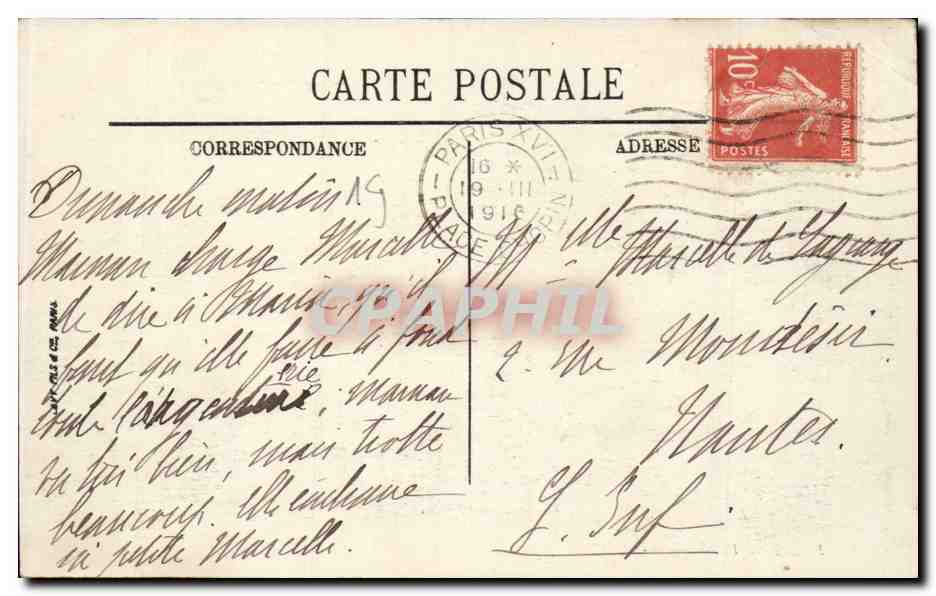 CARTE POSTALE
CORRESPONDANCE
ADRESSE
10c
REPUBLIQUE FRANCAISE
POSTES
PARIS XVI E
16 *
19 - III
1916
PLACE CHOPIN
Dimanche matin 19
Maman charge Marcelle
de dire à Maria qu'il
faut qu'elle fasse à fond
toute l'argenterie, Maman
va très bien, mais trotte
beaucoup. Elle embrasse
sa petite Marcelle.
Mlle Marcelle de Lagrange
2. rue Mondésir
Nantes.
L. Inf.
CPAPHIL
LEVY FILS & Cie, PARIS